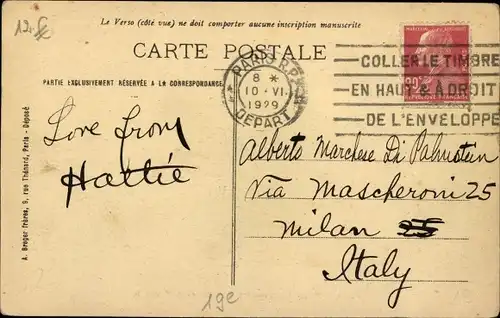 12.-
Le Verso (côté vue) ne doit comporter aucune inscription manuscrite
CARTE POSTALE
PARTIE EXCLUSIVEMENT RÉSERVÉE A LA CORRESPONDANCE
PARIS R.P.
8 *
10 - VI
1929
DÉPART
COLLER LE TIMBRE
EN HAUT & À DROITE
DE L'ENVELOPPE
90c
Love from
Hattie
Alberto Marchese Di
Via Mascheroni 25
Milan
Italy
A. Breger frères, 9, rue Thénard, Paris - Déposé
19e